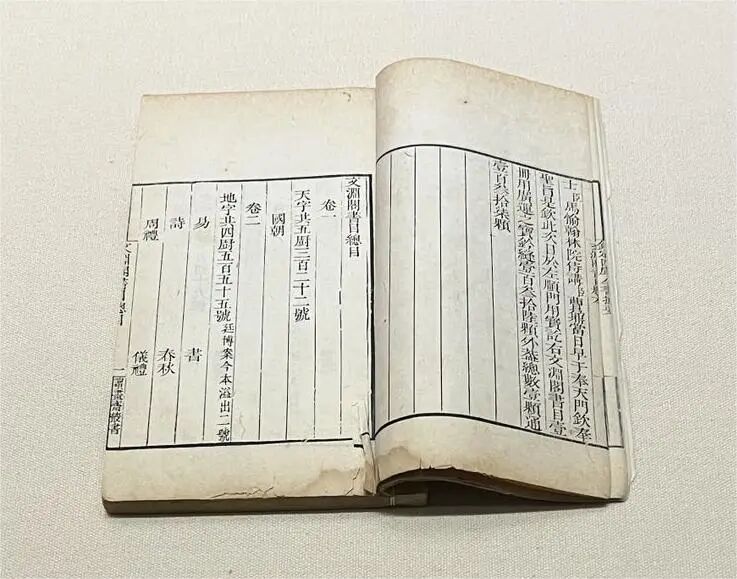 士臣馬愉翰林院侍講臣曹鼐當日早于奉天門欽奉
聖旨是欽此次日於左順門用寶訖右文淵閣書目壹
冊用廣運之寶鈐縫壹百叁拾陸顆外葢總數壹顆通
壹百叁拾柒顆
文淵閣書目總目
卷一
天字共五厨三百二十二號
國朝
卷二
地字共四厨五百五十五號 廷博案今本溢出二號
易 書
詩 春秋
周禮 儀禮
文淵閣書目總目 一 讀畫齋叢書